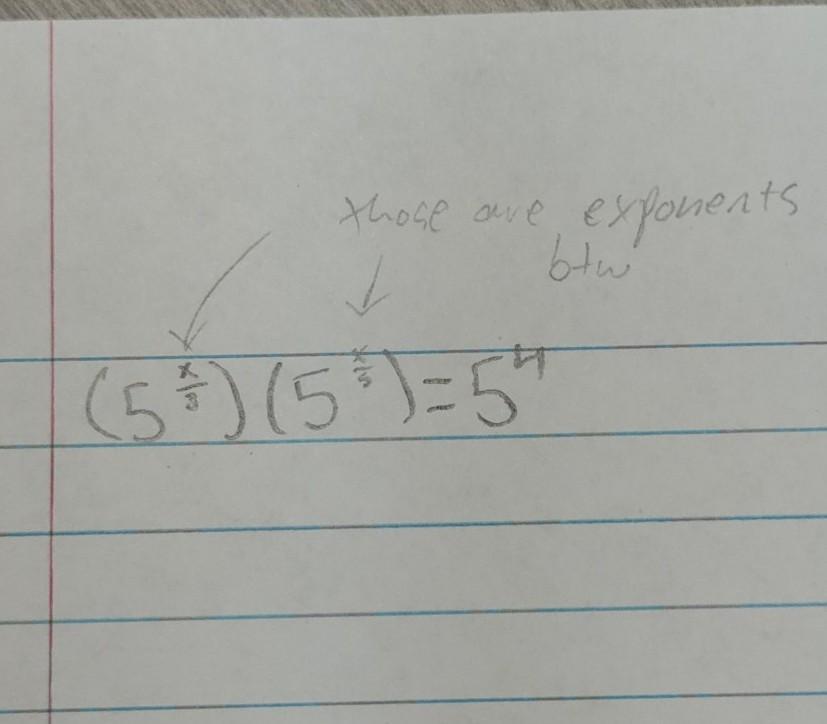 those are exponents
btw
(5^(x/3))(5^(x/5))=5^4